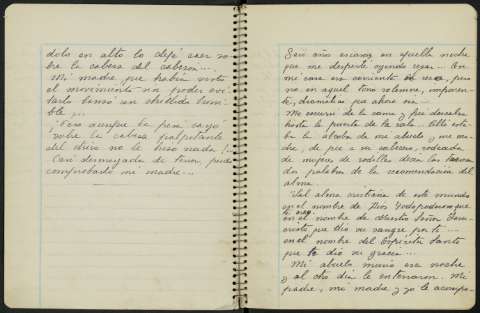 dolo en alto lo dejé caer so-
bre la cabeza del cabezón...
Mi madre, que había visto
el movimiento sin poder evi-
tarlo lanzó un chillido horri-
ble...
¡Pero aunque la pesa cayó
sobre la cabeza palpitante
del chico no le hizo nada!...
Casi desmayada de terror, pudo
comprobarlo mi madre...
Seis años escasos en aquella noche
que me desperté oyendo rezar... En
mi casa era corriente, pero
no en aquel tono solemne, imponen-
te, dramático que ahora era...
Me escurrí de la cama y fui descalza
hasta la puerta de la sala. Allí esta-
ba la alcoba de mi abuelo, y mi ma-
dre, de pie a su cabecera, rodeada
de mujeres de rodillas decía las
palabras de la recomendación del
alma.
Sal alma cristiana de este mundo
en el nombre de Dios Todopoderoso que
te creó.
en el nombre de Nuestro Señor Jesu-
cristo que dió su sangre por ti...
en el nombre del Espíritu Santo
que te dió su gracia...
Mi abuelo murió esa noche
y al otro día le enterraron. Mi
padre, mi madre y yo le acompa-